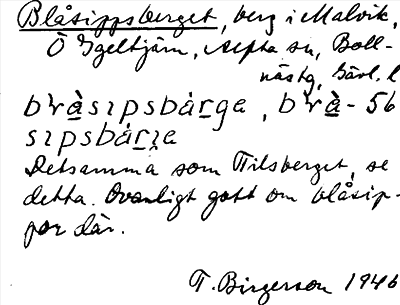 Blåsippsberget, berg i Malvik,
Ö Igeltjärn, Alfta sn, Boll-
nästg, Gävl. l
bràsɪpsbàrge, brà- 56
sɪpsbàrɪe
Detsamma som Tilsberget, se
detta. Ovanligt gott om blåsip-
por där.
T. Birgerson 1946